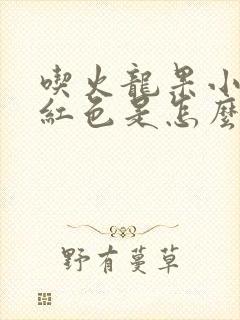 喫火龍果小
紅色是怎麼
野有蔓草